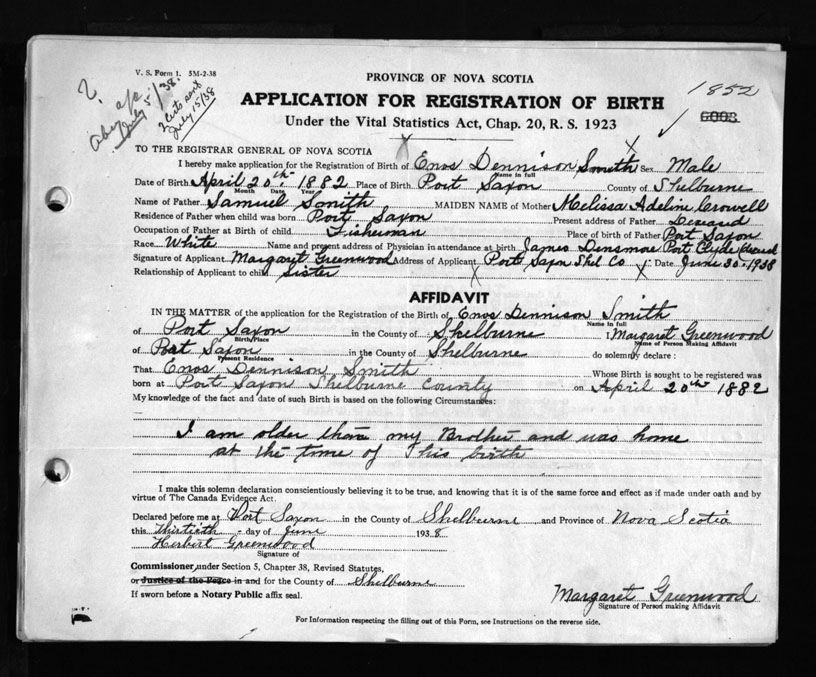 V. S. Form 1. 5M-2-38
2.
July 5/38.
2 Certs sent
July 15/38
PROVINCE OF NOVA SCOTIA
1852
APPLICATION FOR REGISTRATION OF BIRTH
6003
Under the Vital Statistics Act, Chap. 20, R. S. 1923
TO THE REGISTRAR GENERAL OF NOVA SCOTIA
I hereby make application for the Registration of Birth of Enos Dennison Smith Sex Male
Name in full
Date of Birth April 20th 1882 Place of Birth Port Saxon County of Shelburne
Month Date Year
Name of Father Samuel Smith MAIDEN NAME of Mother Melissa Adeline Crowell
Residence of Father when child was born Port Saxon Present address of Father Deceasd
Occupation of Father at Birth of child Fisherman Place of birth of Father Port Saxon
Race White Name and present address of Physician in attendance at birth James Densmore Port Clyde
Signature of Applicant Margaret Greenwood Address of Applicant Port Saxon Shel Co Date June 30. 1938
Relationship of Applicant to child Sister
AFFIDAVIT
IN THE MATTER of the application for the Registration of the Birth of Enos Dennison Smith
Name in full
of Port Saxon in the County of Shelburne I Margaret Greenwood
Birth Place Name of Person Making Affidavit
of Port Saxon in the County of Shelburne do solemnly declare:
Present Residence
That Enos Dennison Smith Whose Birth is sought to be registered was
born at Port Saxon Shelburne County on April 20th 1882
My knowledge of the fact and date of such Birth is based on the following Circumstances:
I am older than my Brother and was home
at the time of This birth
I make this solemn declaration conscientiously believing it to be true, and knowing that it is of the same force and effect as if made under oath and by
virtue of The Canada Evidence Act.
Declared before me at Port Saxon in the County of Shelburne and Province of Nova Scotia
this Thirtieth day of June 1938
Herbert Greenwood
Signature of
Commissioner under Section 5, Chapter 38, Revised Statutes,
or Justice of the Peace in and for the County of Shelburne
If sworn before a Notary Public affix seal.
Margaret Greenwood
Signature of Person making Affidavit
For Information respecting the filling out of this Form, see Instructions on the reverse side.